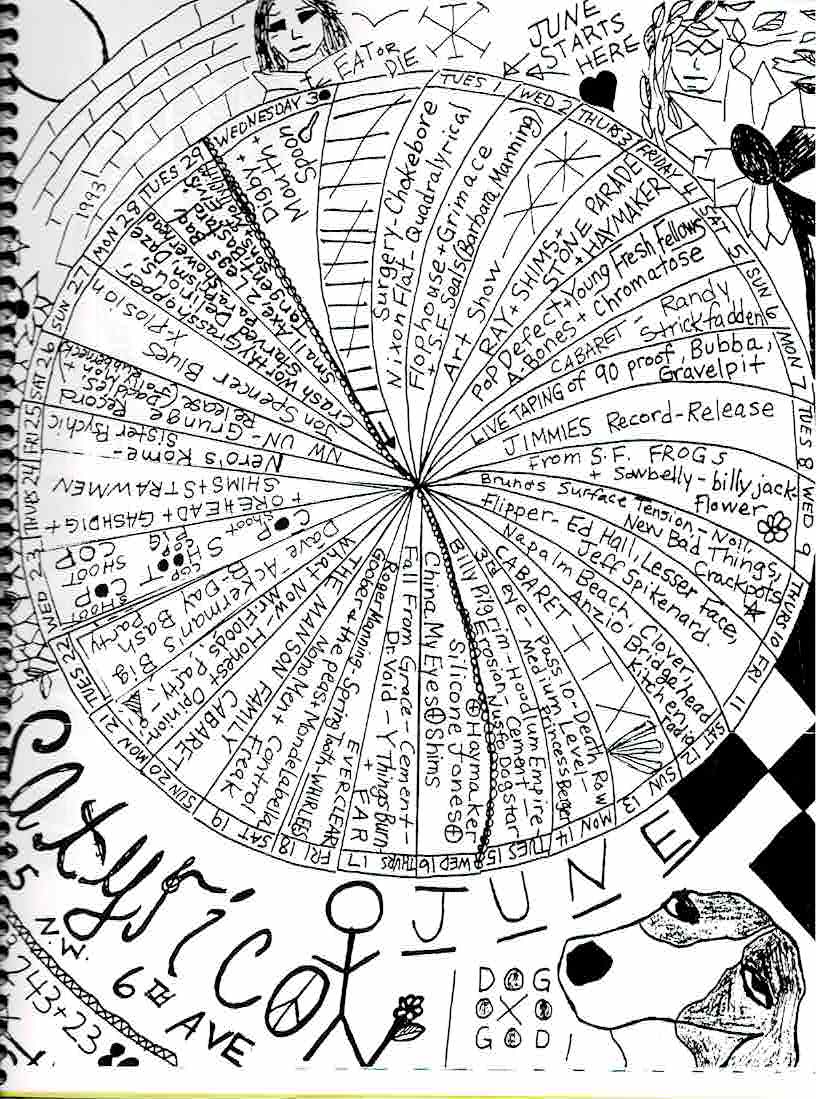 EAT OR
DIE
JUNE
STARTS
HERE
1993!
TUES 1
Surgery-Chokebore
Nixon Flat-Quadralyrical
WED 2
Flophouse + Grimace
+ S.F. Seals (Barbara Manning)
THURS 3
Art Show
FRIDAY 4
RAY + SHIMS +
STONE PARADE
+ HAYMAKER
SAT 5
POP Defect + Young Fresh Fellows
A-Bones + Chromatose
SUN 6
CABARET - Randy
Strickfadden
MON 7
LIVE TAPING of 90 proof, Bubba,
Gravelpit
TUES 8
JIMMIES Record-Release
WED 9
From S.F. FROGS
+ Sowbelly-billyjack
Flower
THURS 10
Bruno's Surface Tension-Noil,
New Bad Things,
Crackpots
FRI 11
Flipper-Ed Hall, Lesser Face,
Jeff Spikenard.
SAT 12
Napalm Beach, Clover,
Anzio Bridgehead
Kitchen
Radio
SUN 13
CABARET
MON 14
3rd eye-Pass 10-Death Row
Medium Level-
Princess Berger
TUES 15
Billy Pilgrim-Hoodlum Empire-
Erosion-Cement-
Nusto Dogstar
WED 16
China My Eyes + Shims
Silicone Jones +
+ Haymaker
THURS 17
Fall From Grace-Cement-
Dr. Void-Y Things Burn
+ EAR
FRI 18
Roger Manning-Spring Tooth-WHIRLEES
Goober + the peas + Mondelabella
EVERCLEAR
SAT 19
THE MANSON FAMILY
Mono Men + Control
Freak
SUN 20
CABARET
MON 21
What Now-Honest Opinion
Mr. Floogs Party-
TUES 22
Dave "Ackerman's Big
B-Day Bash
Party
WED 23
SHOOT
COP
SHOOT
COP
SHOOT
COP
THURS 24
FOREHEAD + GASHDIG +
SHIMS + STRAWMEN
FRI 25
Nero's Rome-
Sister Psychic
SAT 26
NW UN-Grunge Record
Release
SUN 27
Jon Spencer Blues
X-Plosion
MON 28
Crashworthy, Grasshopper,
Starved Delirious,
TUES 29
Small Axe 2 Legs Bad
WEDNESDAY 30
Digby +
Mouth +
Spoon
JUNE
Satyricon
N.W.
6TH AVE
243+23
DOG
OXO
GOD